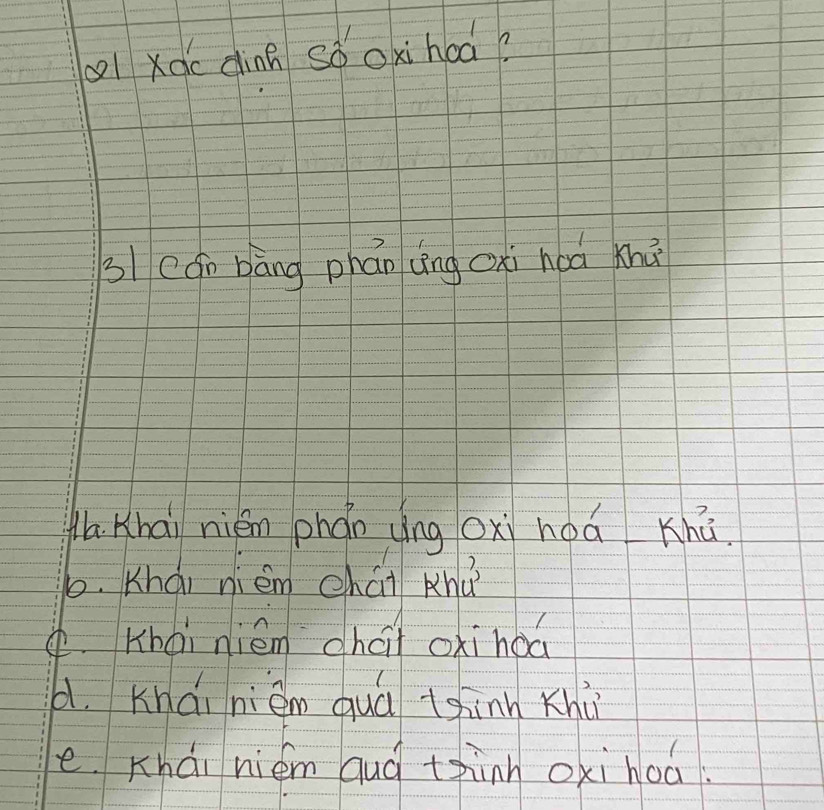 2/ xác định số oxi hoá ?
3/ cân bằng phản ứng oxi hoá khử
a. Khái niệm phản ứng oxi hoá - Khử.
b. Khái niệm chất khử
c. Khái niệm chất oxi hoá
d. Khái niệm quá trình khử
e. Khái niệm quá trình oxi hoá.